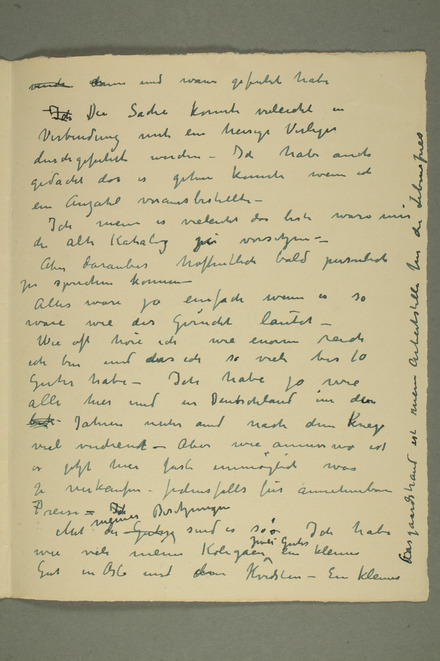 und wann gefuhrt habe
Ich Die Sache konnte vieleicht in
Verbindung mit ein hiesige Verleger
durchgefuhrt werden – Ich habe auch
gedacht das es gehen konnte wenn ich
ein Anzahl vorausbestelle –
Ich meine es vieleicht das beste ware mir
die alte Katalog zu vorsetzen –
Aber daruber hoffentlich bald personlich
zu sprechen konnen
Alles ware ja einfach wenn es so
ware wie das Gerucht lautet –
Wie oft höre ich wie enorm reich
ich bin und das ich so viele bis 10
Guter habe – Ich habe ja wie
alle hier und in Deutschland in den
Jahren unter und nach dem Krieg
viel verdient – Aber wie
es jetzt hier fast unmöglich was
zu verkaufen – jedenfalls für annehmbare
Preise – Ich
Mit die meiner Besitzungen sind es so: Ich habe
wie viele meine Kolegaen zwei Guter ein kleines
Gut in Oslo und dan Hvidsten – Ein kleines
Aasgaardstrand ist mein Arbeitstelle